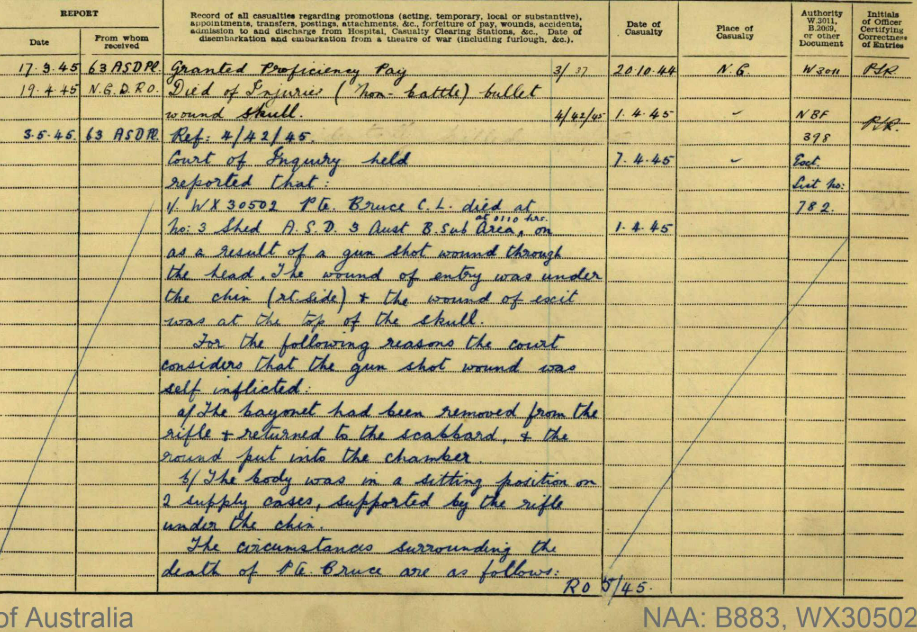 REPORT
Record of all casualties regarding promotions (acting, temporary, local or substantive),
appointments, transfers, postings, attachments, &c., forfeiture of pay, wounds, accidents,
admission to and discharge from Hospital, Casualty Clearing Stations, &c., Date of
disembarkation and embarkation from a theatre of war (including furlough, &c.).
Date of
Casualty
Place of
Casualty
Authority
W.3011,
B.2069,
or other
Document
Initials
of Officer
Certifying
Correctness
of Entries
Date
From whom
received
17.3.45 63 ASDPl. Granted Proficiency Pay 3/37 20.10.44 N.G. W3011
19.4.45 N.G.D.R.O. Died of Injuries (non-battle) bullet
wound skull. 4/42/45 1.4.45 " NBF
398
3.5.45. 63 ASDPl. Ref: 4/42/45.
Court of Inquiry held 7.4.45 "
reported that: List No:
1/ WX30502 Pte. Bruce C.L. died at 782.
at 0110 hrs.
No: 3 Shed A.S.D. 3 Aust B.Sub Area, on 1.4.45
as a result of a gun shot wound through
the head. The wound of entry was under
the chin (rt side) & the wound of exit
was at the top of the skull.
For the following reasons the court
considers that the gun shot wound was
self inflicted:
a/ The bayonet had been removed from the
rifle & returned to the scabbard, & the
round put into the chamber.
b/ The body was in a sitting position on
2 supply cases, supported by the rifle
under the chin.
The circumstances surrounding the
death of Pte. Bruce are as follows:
RO 5/45.
of Australia
NAA: B883, WX30502